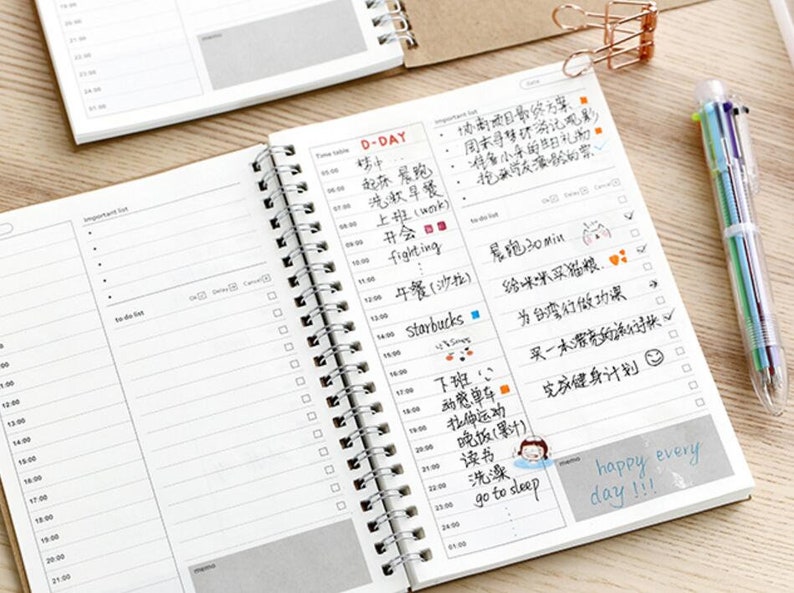 18:00
19:00
20:00
21:00
22:00
23:00
24:00
01:00
memo
important list
Ok Delay Cancel
to do list
09:00
10:00
11:00
12:00
13:00
14:00
15:00
16:00
17:00
18:00
19:00
20:00
21:00
memo
Time table
D-DAY
05:00
06:00
起床 晨跑
07:00
洗漱 早餐
08:00
上班 (work)
09:00
开会
10:00
fighting
11:00
12:00
午餐 (沙拉)
13:00
14:00
starbucks
15:00
16:00
17:00
下班
18:00
动感单车
19:00
拉伸运动
20:00
晚饭 (果汁)
21:00
读书
22:00
洗澡
23:00
go to sleep
24:00
01:00
Date
important list
协商项目最终方案
周末寻梦环游记观影
准备小米的生日礼物
抢
演唱会的票
Ok Delay Cancel
to do list
晨跑30min
给咪咪买猫粮
为台湾行做功课
买一本漂亮的旅行手帐
完成健身计划
memo
happy every
day!!!